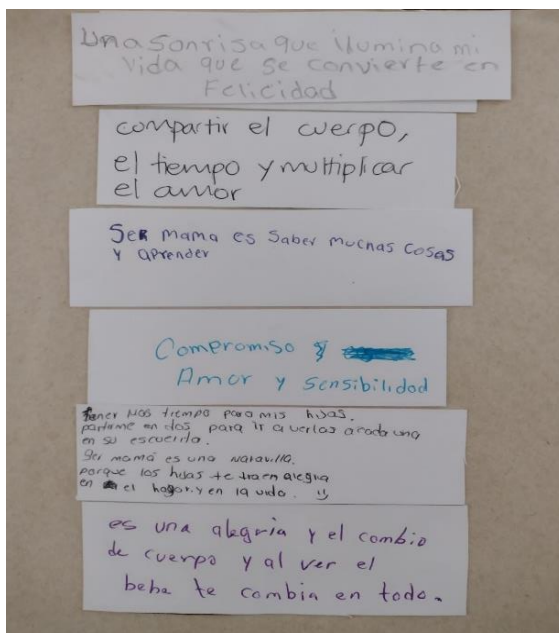 Una sonrisa que ilumina mi
vida que se convierte en
Felicidad
compartir el cuerpo,
el tiempo y multiplicar
el amor
Ser mama es saber muchas cosas
y aprender
Compromiso y
Amor y sensibilidad
tener más tiempo para mis hijas.
partirme en dos para ir a verlas a cada una
en su escuela.
Ser mamá es una maravilla.
porque las hijas te traen alegria
en el hogar y en la vida. :)
es una alegria y el cambio
de cuerpo y al ver el
bebe te cambia en todo.